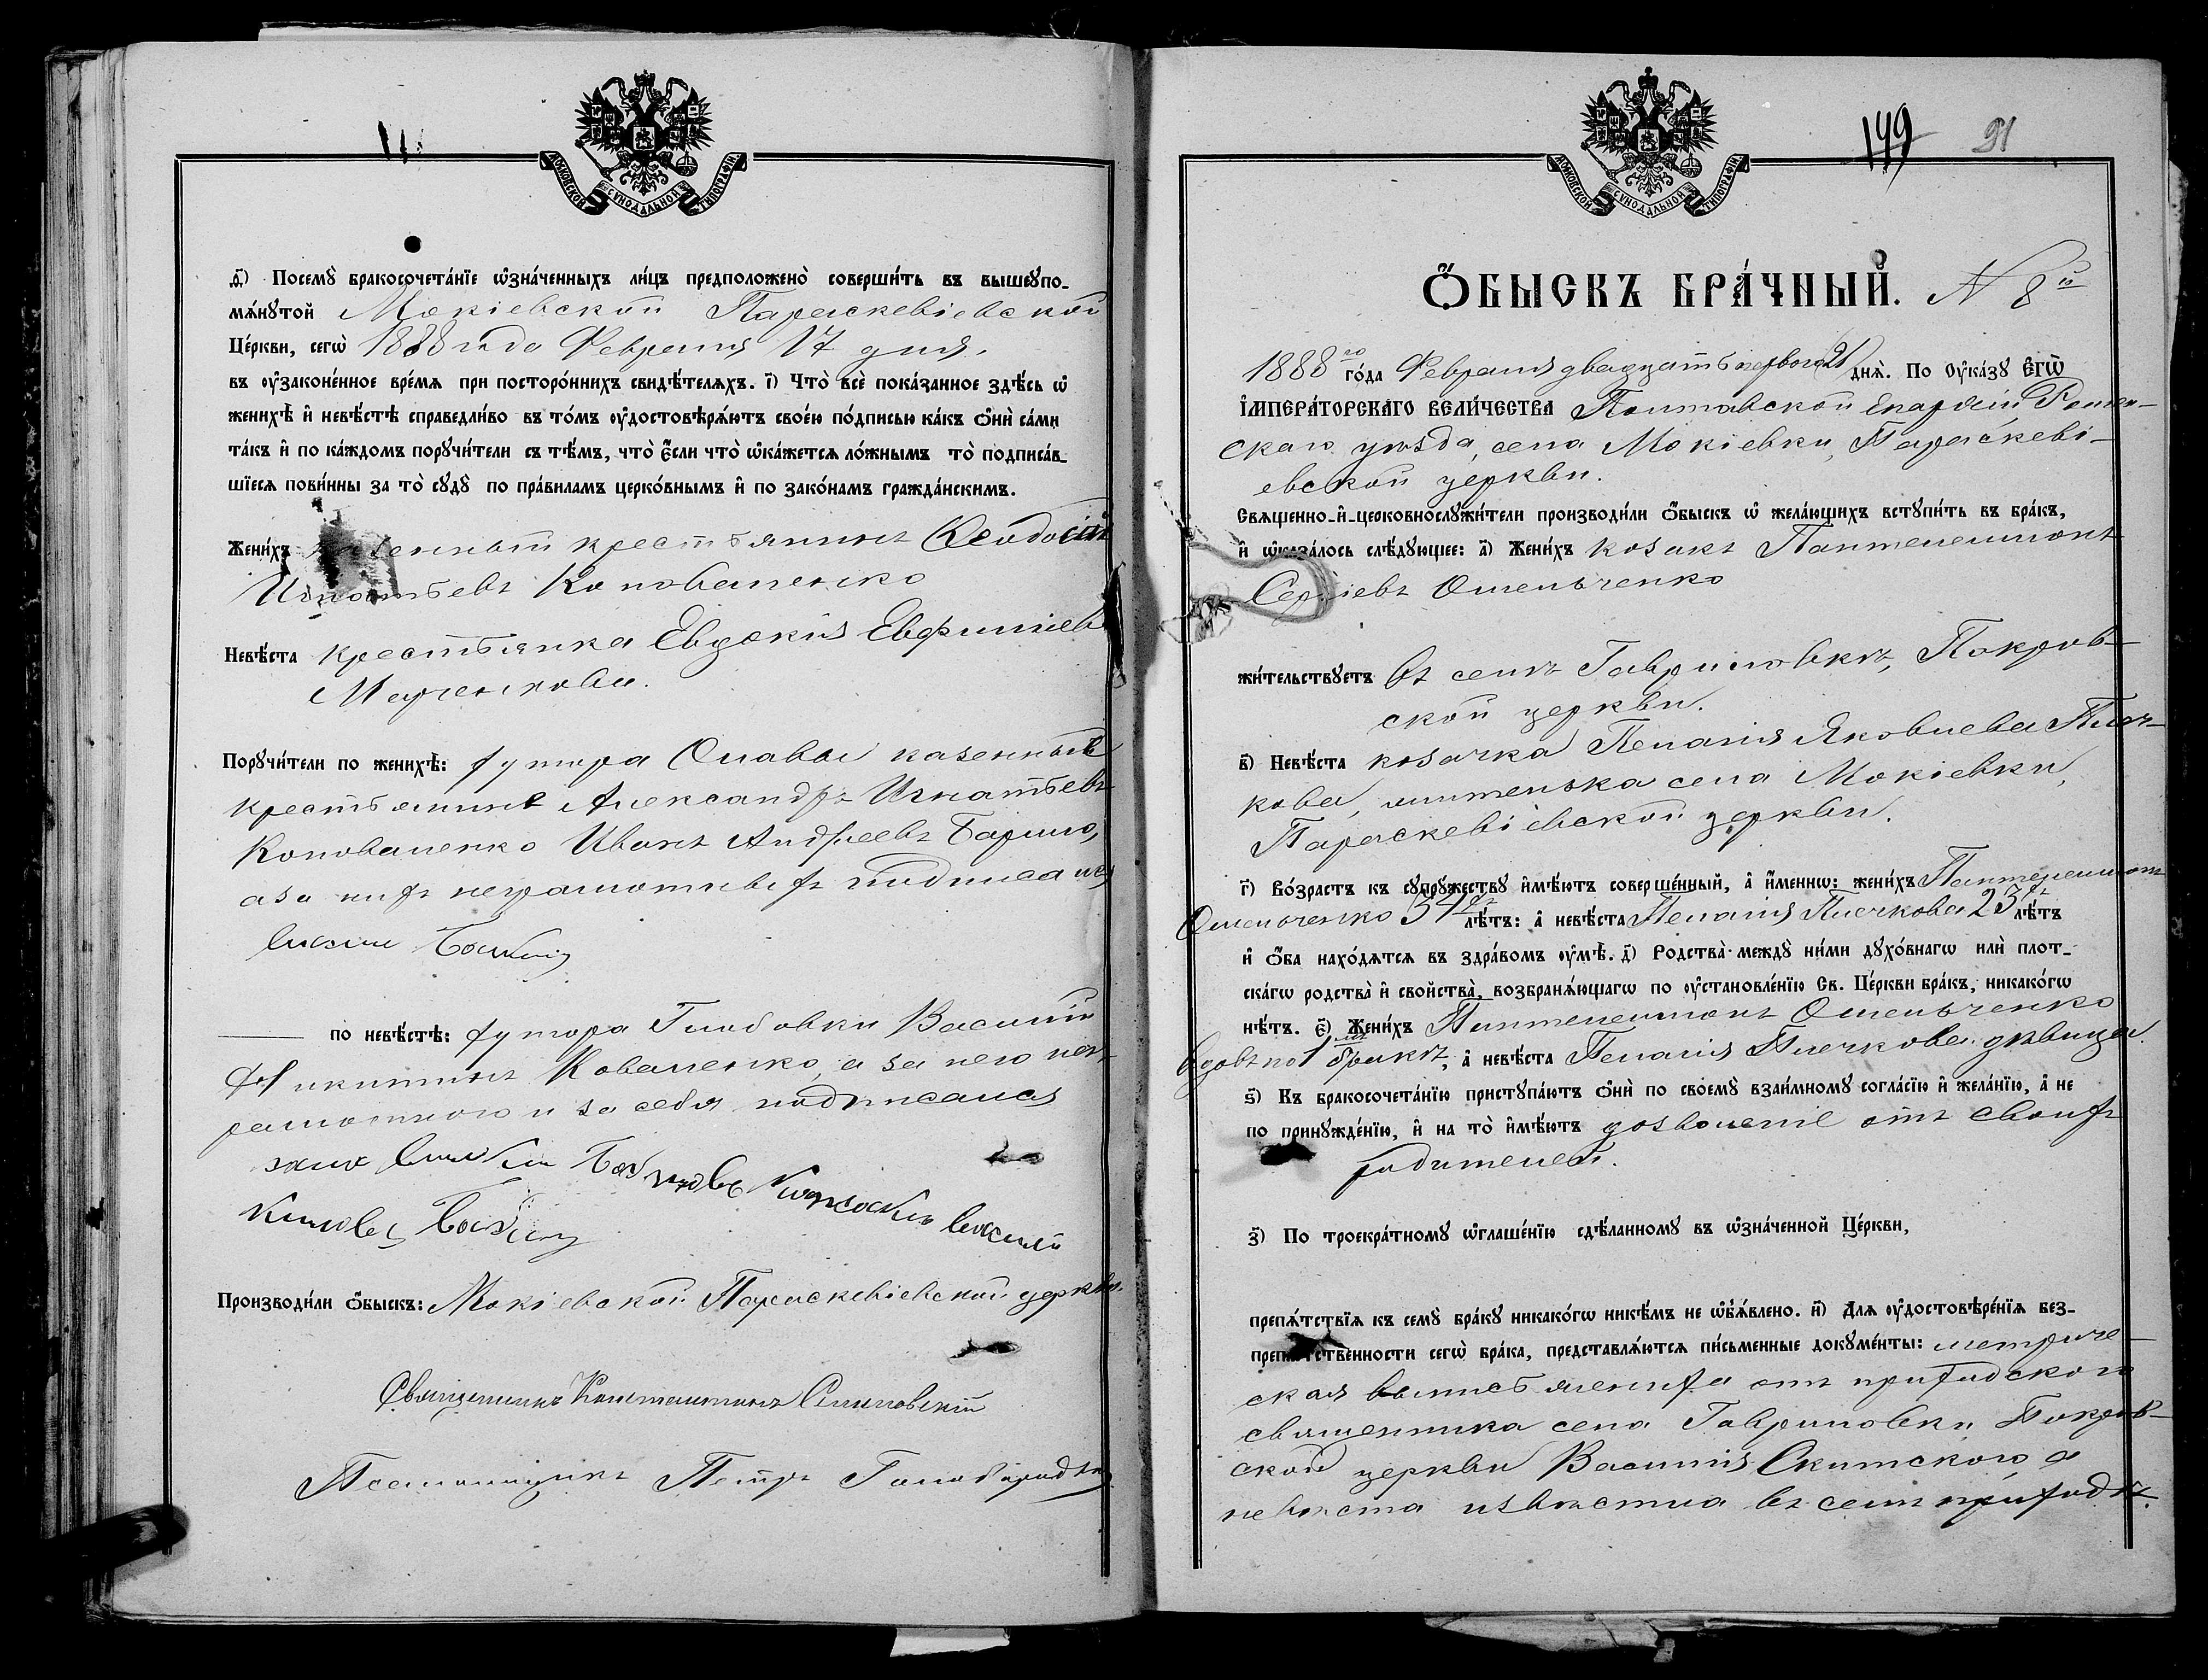 МОСКОВСКОЙ СѴНОДАЛЬНОЙ ТИПОГРАФІИ
д҃) Посемꙋ̀ бракосочета́нїе ѡ҆зна́ченныхъ ли́цъ предположено̀ соверши́ть въ вышеꙋпо-
мѧ́нꙋтой Мокіевской Параскевіевской
Це́ркви, сегѡ̀ 1888 года Февраля 17 дня,
въ ᲂу҆зако́не́нное вре́мѧ при посторо́ннихъ свидѣ́телѧхъ. і҃) Что̀ всѐ пока́занное здѣ́сь ѡ҆
женихѣ̀ и҆ невѣ́стѣ справедли́во въ то́мъ ᲂу҆достовѣрѧ́ютъ свое́ю по́дписью ка́къ ѻ҆нѝ са́ми
та́къ и҆ по ка́ждомъ порꙋчи́тели съ тѣ́мъ, что̀ є҆́сли что̀ ѡ҆ка́жетсѧ ло́жнымъ то̀ подписа́в-
шїесѧ пови́нны за то̀ сꙋдꙋ̀ по пра́виламъ церко́внымъ и҆ по зако́намъ гражда́нскимъ.
Жени́хъ казенный крестьянинъ Ѳеодосій
Игнатьевъ Коноваленко
Невѣ́ста крестьянка Евдокія Евфиміева
Марченкова.
Порꙋчи́тели по женихѣ̀: хутора Олавы казенные
крестьяние Александръ Игнатьевъ
Коноваленко Иванъ Андреевъ Барило,
а за нихъ неграмотныхъ подписался
по невѣ́стѣ: хутора Глобовки Василій
Никитинъ Коваленко, а за него нег-
рамотного и за себя подписался
Производи́ли ѻ҆́быскъ: Мокіевской Параскевіевской церкви
Священникъ Константинъ
Псаломщикъ Петръ
МОСКОВСКОЙ СѴНОДАЛЬНОЙ ТИПОГРАФІИ
149 91
Ѻ҆́БЫСКЪ БРА́ЧНЫЙ. N 8й
1888го го́да Февраля двадцать первого 21 днѧ̀. По Оу҆ка́зꙋ Є҆гѡ̀
І҆мпера́торскагѡ Вели́чества Полтавской Епархіи Ромен-
скаго уѣзда, села Мокіевки, Параскеві-
евской церкви.
Свѧще́нно-и҆-церковнослꙋжи́тели производи́ли ѻ҆́быскъ ѡ҆ жела́ющихъ встꙋпи́ть въ бра́къ,
и҆ ѡ҆каза́лось слѣ́дꙋющее: а҃) Жени́хъ козакъ Пантелеимонъ
Сергіевъ Омельченко
жи́тельствꙋетъ въ селѣ Гавриловкѣ, Покров-
ской церкви.
в҃) Невѣ́ста козачка Пелагія Яковлева Плеч-
кова, жителька села Мокіевки,
Параскевіевской церкви.
г҃) Во́зрастъ къ сꙋпрꙋ́жествꙋ и҆мѣ́ютъ соверше́нный, а҆ и҆́менно: жени́хъ Пантелеимонъ
Омельченко 34хъ лѣ́тъ: а҆ невѣ́ста Пелагія Плечкова 23хъ лѣ́тъ
и҆ ѻ҆́ба нахо́дѧтсѧ въ здра́вомъ ᲂу҆мѣ̀. д҃) Родства̀ междꙋ̀ ни́ми дꙋхо́внагѡ илѝ плот-
ска́гѡ родства̀ и҆ свойства̀, возбранѧ́ющагѡ по ᲂу҆становле́нїю Св. Це́ркви бра́къ, никако́гѡ
нѣ́тъ. є҃) Жени́хъ Пантелеимонъ Омельченко
вдовъ по 1мъ бракѣ, а҆ невѣ́ста Пелагія Плечкова дѣвица.
ѕ҃) Къ бракосочета́нїю пристꙋпа́ютъ ѻ҆нѝ по своемꙋ̀ взаи́мномꙋ согла́сїю и҆ жела́нїю, а҆ не
по принꙋжде́нїю, и҆ на то̀ и҆мѣ́ютъ дозволеніе отъ своихъ
родителей.
з҃) По троекра́тномꙋ ѡ҆глаше́нїю сдѣ́ланномꙋ въ ѡ҆зна́ченной Це́ркви,
препѧ́тствїѧ къ семꙋ̀ бра́кꙋ никако́гѡ никѣ́мъ не ѡ҆б̾ѧ́влено. и҃) Для ᲂу҆достовѣре́нїѧ без-
препѧ́тственности сегѡ̀ бра́ка, представлѧ́ютсѧ пи́сьменные докꙋме́нты: метриче-
ская выпись жениха отъ приходского
священника села Гавриловки Покров-
ской церкви Василія Скитского а
невѣста извѣстна въ семъ приходѣ.